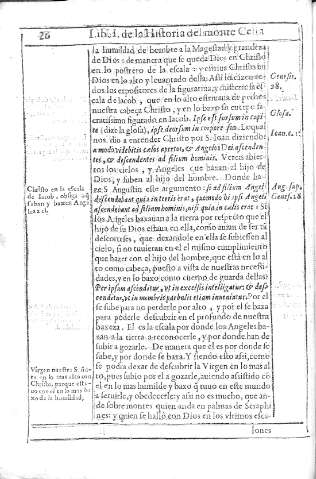 28 Lib. I. de la Historia del monte Celia
la humildad de hombre a la Magestad y grandeza
de Dios: de manera que se queda Dios en Christo
en lo postrero de la escala: y vemos Christo
Dios en lo alto y levantado della. Assi
dos los expositores de la figura
de Iacob, que en lo alto
nuestra cabeça Christo, y en lo baxo
figurado en Iacob. Ipse est sursum in capi-
te (dize la glosa), ipse deorsum in corpore suo. Lo qual
nos dio a entender Christo por S. Ioan diziendo:
a modo videbitis celos apertos, & Angelos Dei ascenden-
tes, & descendentes ad filium hominis. Vereis abier-
tos los cielos, y Angeles que baxan el hijo de
Dios, y suben al hijo del hombre. Donde ha-
ze S. Augustin este argumento: si ad filium Angeli
descendebant quia in terris erat, quomodo hi ipsi Angeli
ascendebant ad filium hominis, nisi quia in celis erat? Si
los Angeles baxauan a la tierra por respeto que el
hijo de
descortes, que dexandole en ella se subiessen al
cielo, si no tuuieran en el el mismo cumplimiento
que hazer con el hijo del hombre, que està en lo al
to como cabeça, puesto a vista de nuestras necessi-
dades, y en lo baxo como cuerpo de guarda dellas:
Per ipsum ascenditur, vt in excelsis intelligatur: & des-
cenditur, vt in membris paruulis etiam inueniatur. Por el
se sube para no perderle por alto, y por el se baxa
para poderle descubrir en el profundo de nuestra
baxeza. El es la escala por donde los Angeles ba-
xan a la tierra a reconocerle, y por donde han de
subir a gozarle. De manera que el es por donde se
sube, y por donde se baxa. Y siendo esto assi, como
se podia dexar de descubrir la Virgen en lo mas al
to, pues subio por el a gozarle, auiendo assistido cõ
el en lo mas humilde y baxo q tuuo en este mundo
a seruirle, y obedecerle: y assi no es mucho, que an-
de sobre montes quien anda en palmas de Seraphi-
nes: y quien se hallò con Dios en los vltimos esca-
lones
Genesis.
28.
Glosa.
Ioan. c. 1.
Aug. sup.
Genes. 28
Christo en la escala
de Iacob, obliga a q
suban y baxen Ange
les a el.
Virgen nuestra S. su-
bio en lo mas alto con
Christo, porque estu-
uo con el en lo mas ba
xo de la humildad.